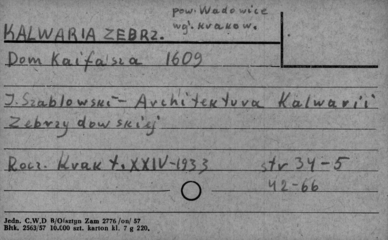 pow. Wadowice
wgł. Kraków.
KALWARIA ZEBRZ.
Dom Kaifasza 1609
J. Szablowski - Architektura Kalwarii
Zebrzydowskiej
Rocz. Krak t. XXIV-1933 str 34-5
42-66
Jedn. C.W.D B/Olsztyn Zam 2776/oo/57
Blhk. 2563/57 10.000 szt. karton kl. 7 g 220.